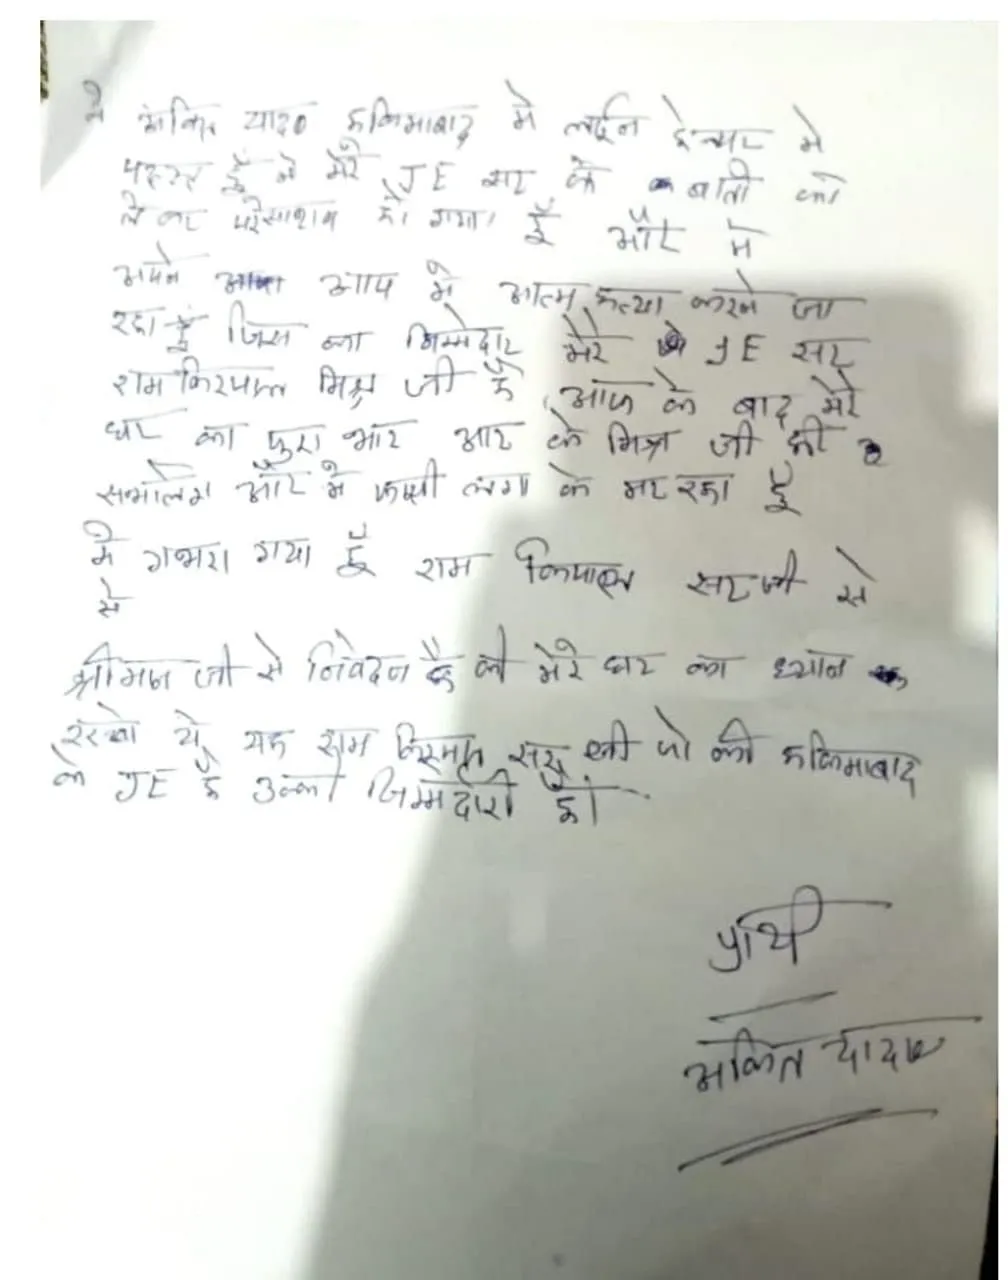 मे अंकित यादव हकिमाबाद मे लाईन हेल्पर मे
हूँ मे मेरे JE सर के बातो को
लेकर परेसान हो गया हूँ और मे
अपने आप मे आत्म हत्या करने जा
रहा हूँ जिस का जिम्मेदार मेरे JE सर
राम किरपाल मिश्र जी है आज के बाद मेरे
घर का पुरा भार आर के मिश्रा जी ही
सभालेगे और मे फासी लगा के मर रहा हूँ
मे गभरा गया हूँ राम किपाल सर जी से
से
श्रीमान जी से निवेदन है की मेरे घर का ध्यान
रखे ये यह राम जी जो की हकिमाबाद
के JE है उनकी जिम्मेदारी हो।
प्रार्थी
अंकित यादव